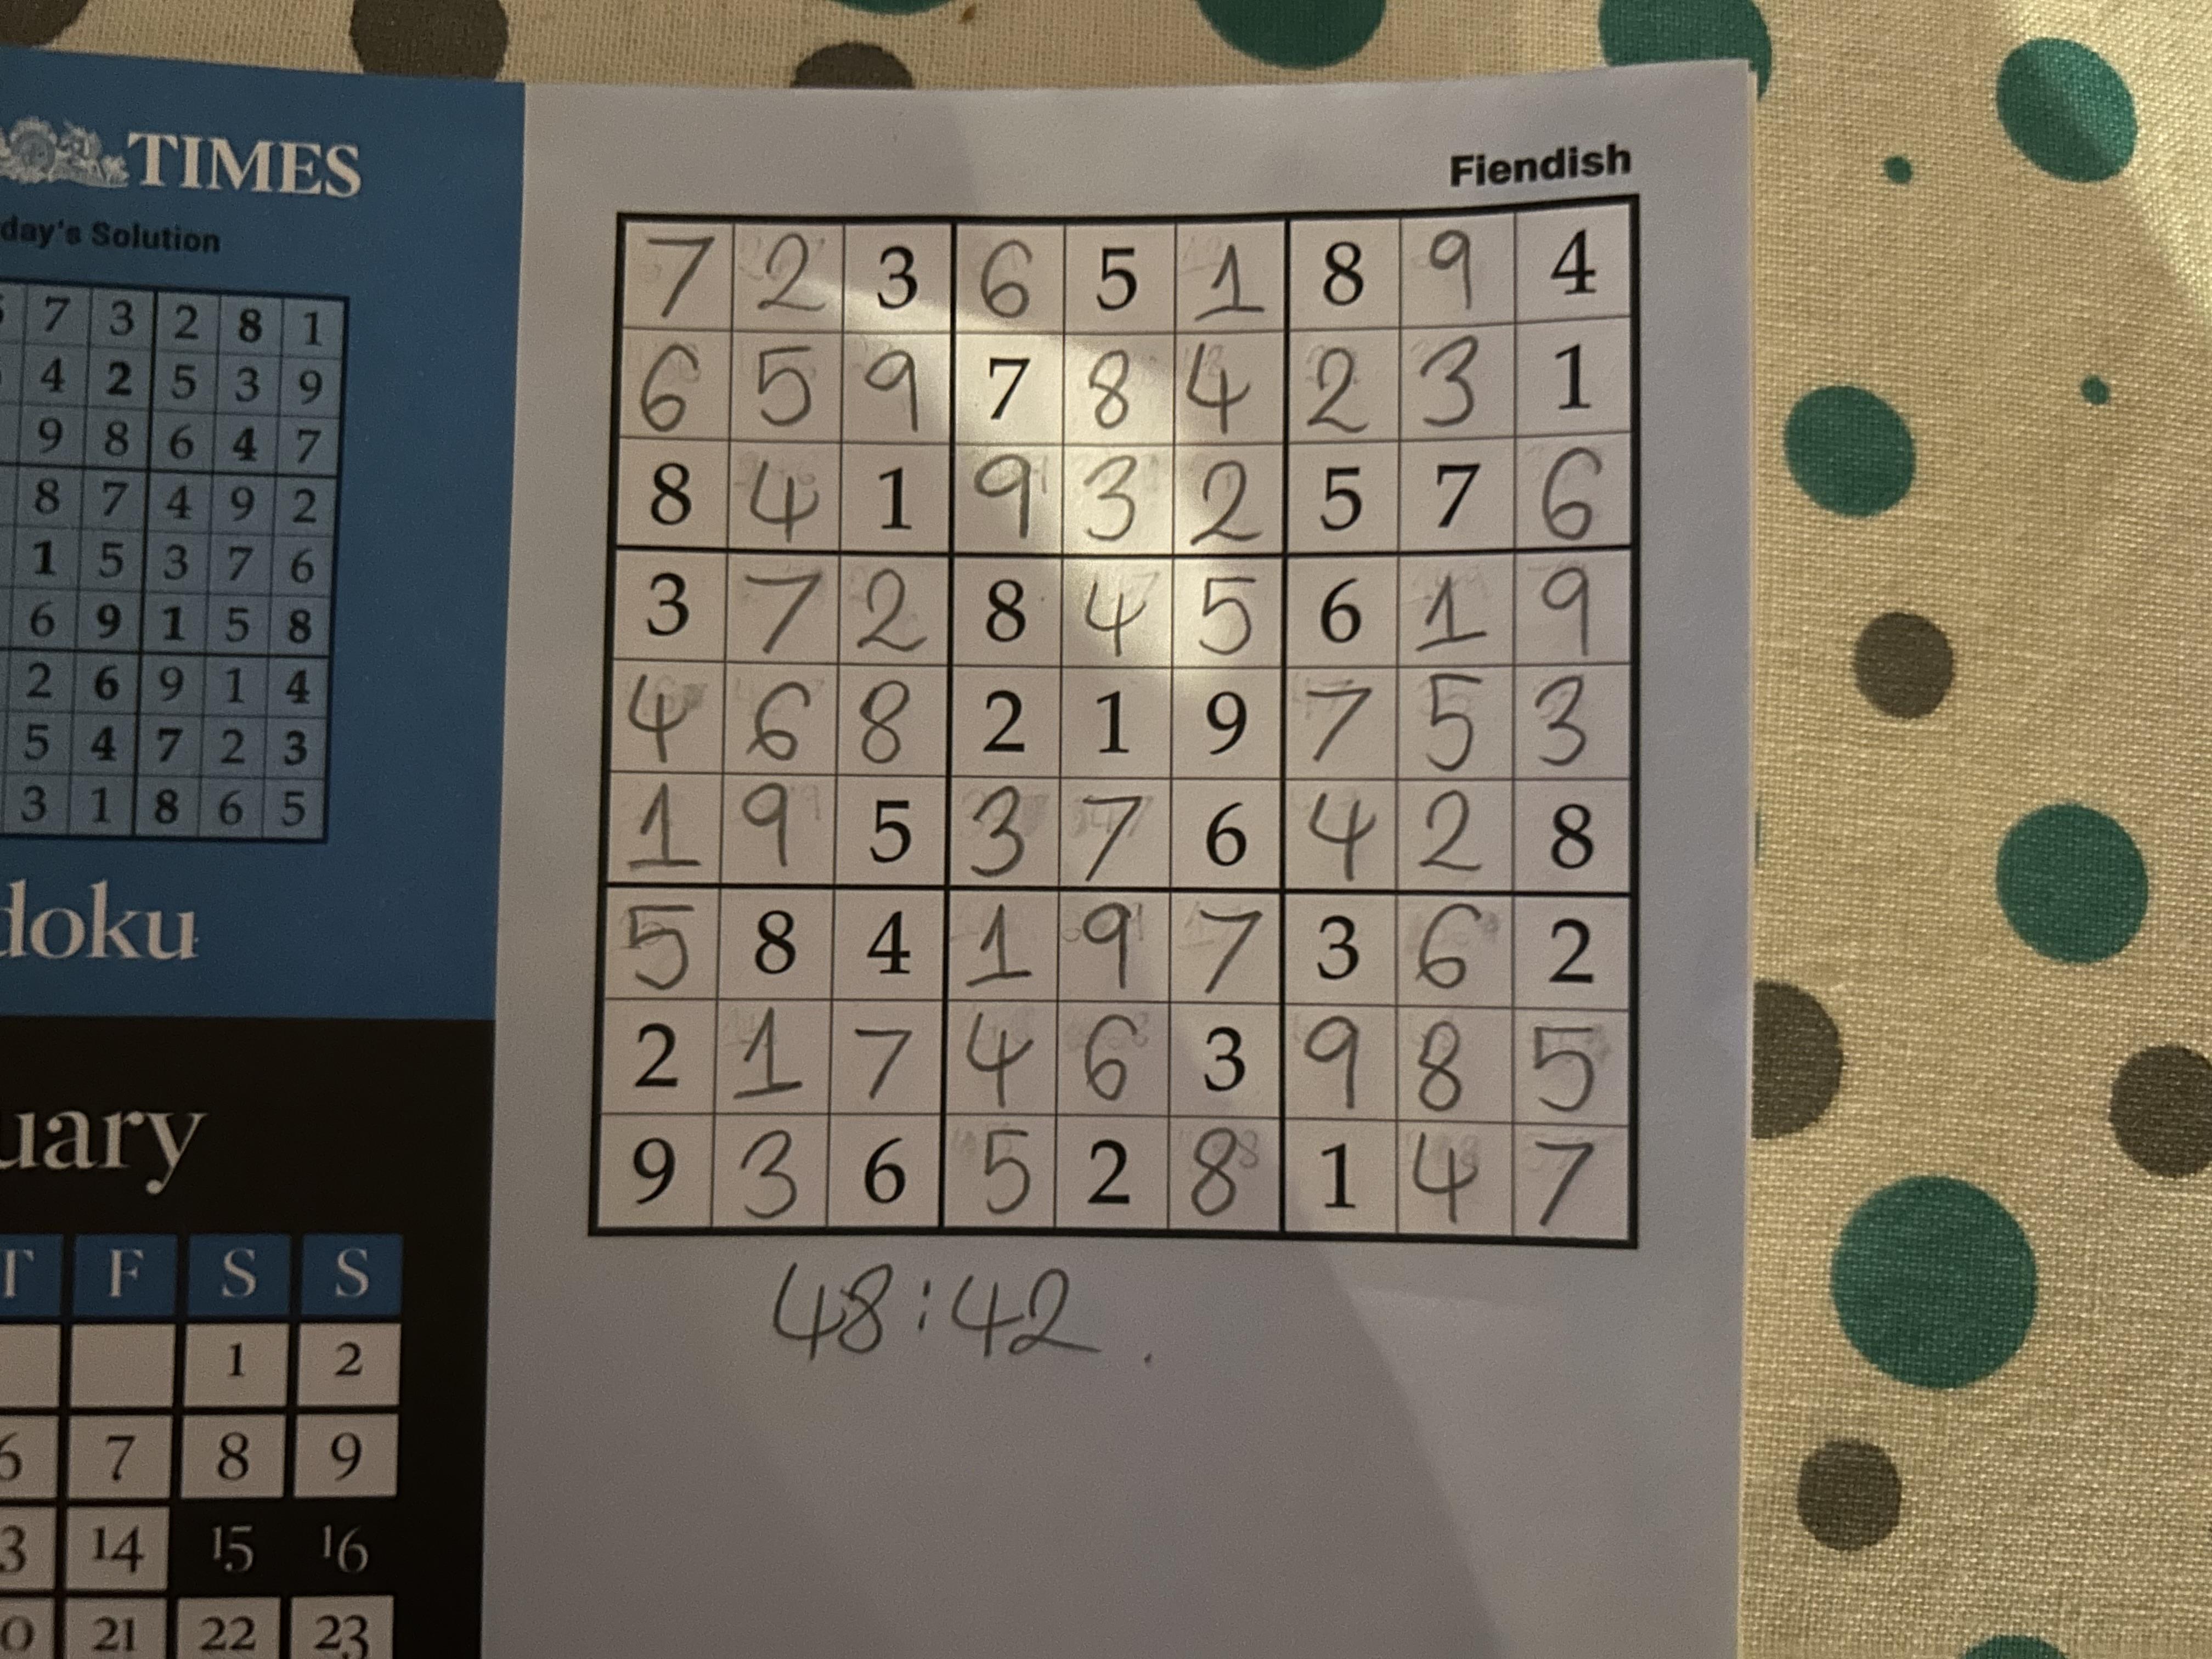 TIMES
day's Solution
7 3 2 8 1
4 2 5 3 9
9 8 6 4 7
8 7 4 9 2
1 5 3 7 6
6 9 1 5 8
2 6 9 1 4
5 4 7 2 3
3 1 8 6 5
doku
uary
T F S S
1 2
6 7 8 9
3 14 15 16
0 21 22 23
Fiendish
7 2 3 6 5 1 8 9 4
6 5 9 7 8 4 2 3 1
8 4 1 9 3 2 5 7 6
3 7 2 8 4 5 6 1 9
4 6 8 2 1 9 7 5 3
1 9 5 3 7 6 4 2 8
5 8 4 1 9 7 3 6 2
2 1 7 4 6 3 9 8 5
9 3 6 5 2 8 1 4 7
48:42.